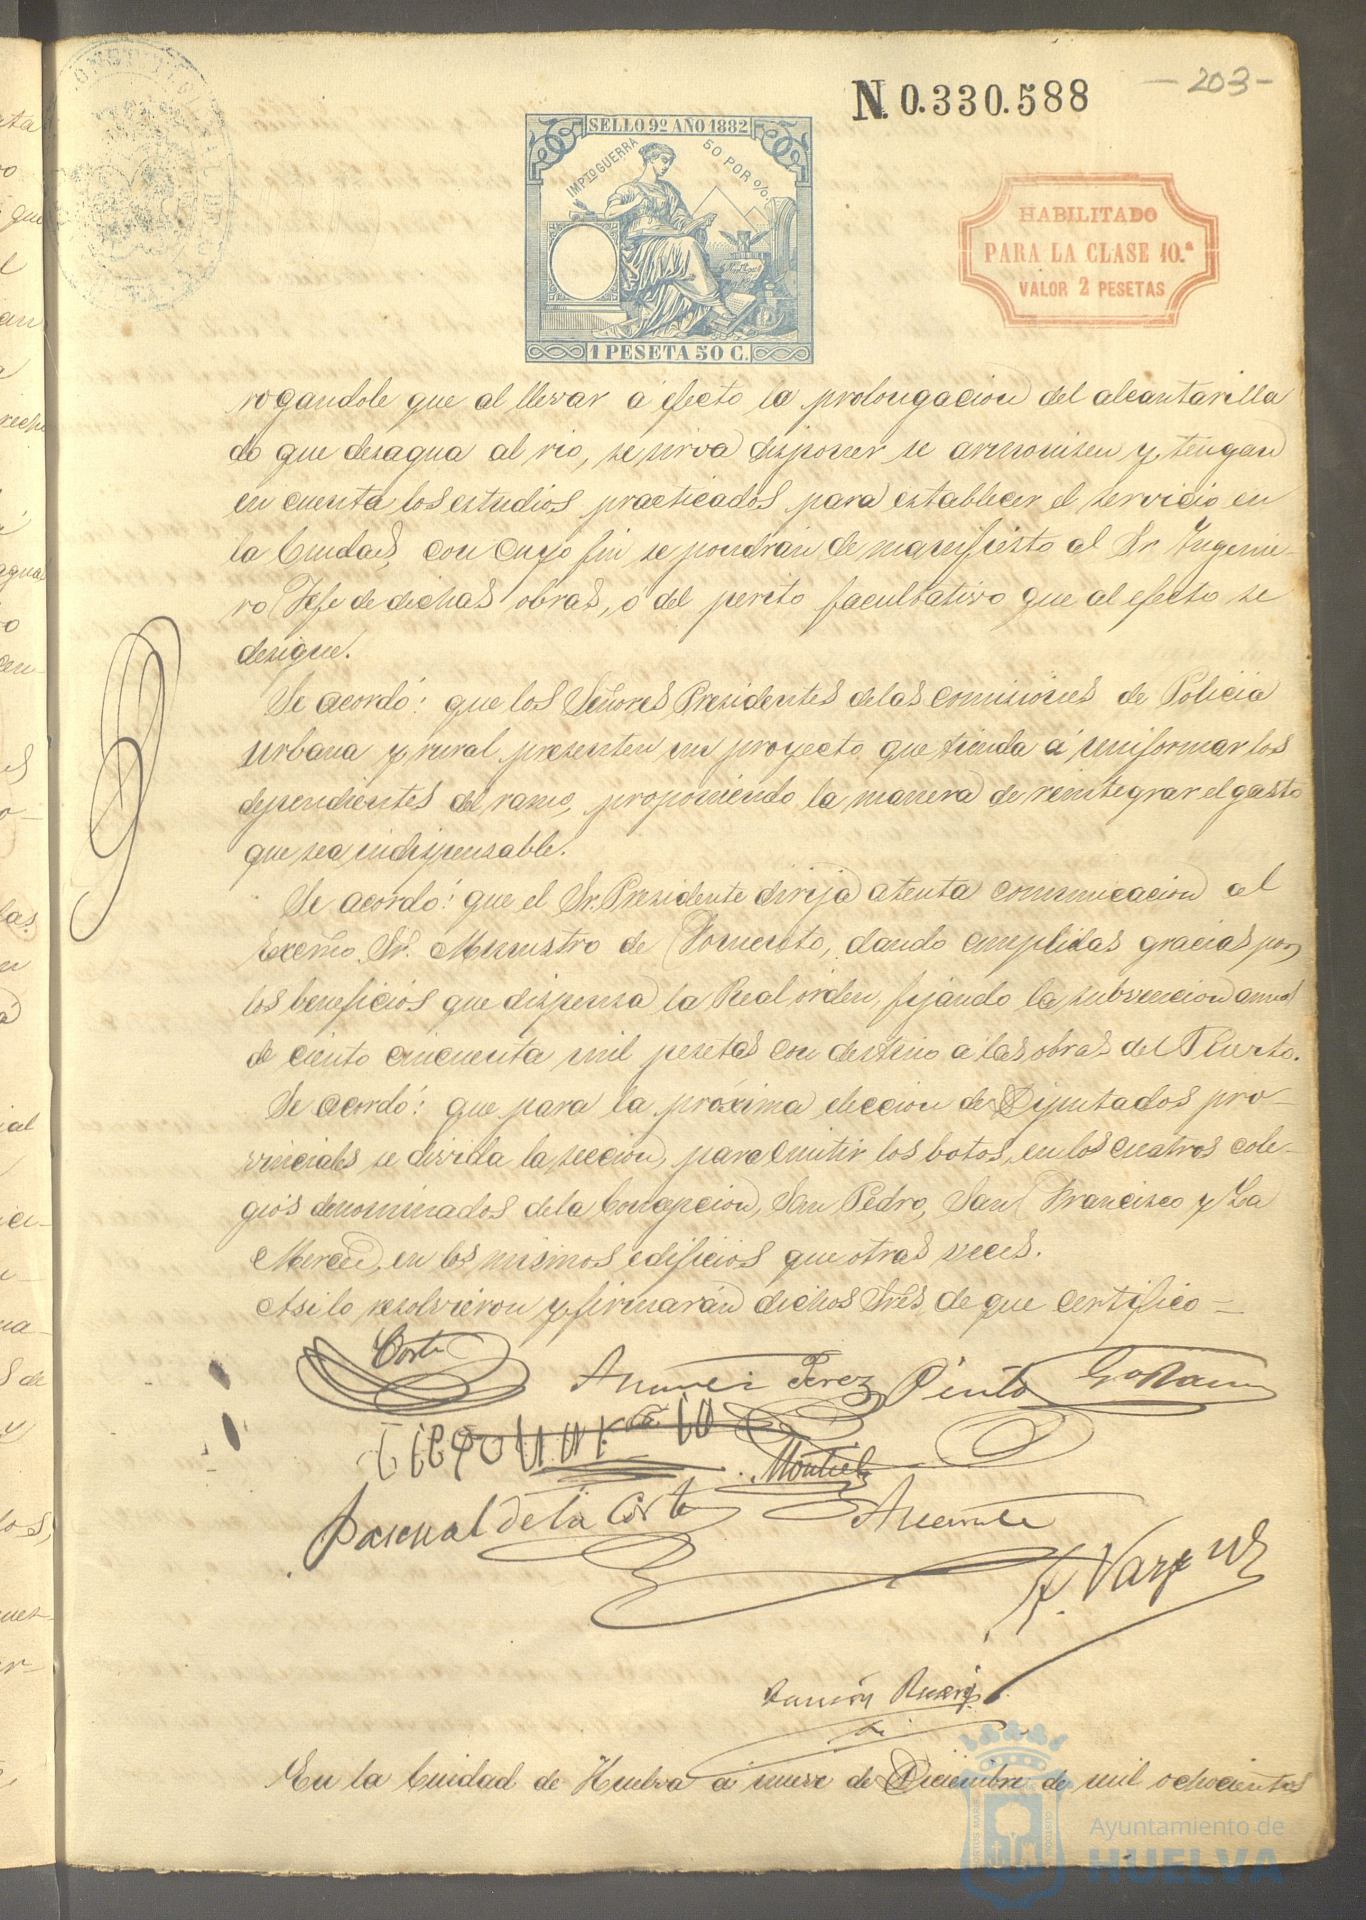 - 203 -
N. 0.330.588
SELLO 9º AÑO 1882
IMPTO GUERRA 50 POR %
1 PESETA 50 C.
HABILITADO
PARA LA CLASE 10.ª
VALOR 2 PESETAS
rogandole que al llevar á efecto la prolongacion del alcantarilla
do que desagua al rio, se sirva disponer se armonisen y tengan
en cuenta los estudios practicados para establecer el servicio en
la Ciudad, con cuyo fin se pondrán de manifiesto al Sr. Ingenie-
ro Jefe de dichas obras, ó del perito facultativo que al efecto se
designe.
Se acordó: que los Señores Presidentes de las comisiones de Policia
urbana y rural presenten un proyecto que tienda á uniformar los
dependientes del ramo, proponiendo la manera de reintegrar el gasto
que sea indispensable.
Se acordó: que el Sr. Presidente dirija atenta comunicacion al
Excmo. Sr. Ministro de Fomento, dando cumplidas gracias por
los beneficios que dispensa la Real órden, fijando la subvencion anual
de ciento cincuenta mil pesetas con destino á las obras del Puerto.
Se acordó: que para la próxima eleccion de Diputados pro-
vinciales se divida la seccion, para emitir los botos, en los cuatros cole-
gios denominados de la Concepcion, San Pedro, San Francisco y La
Merced, en los mismos edificios que otras veces.
Asi lo resolvieron y firmarán dichos Sres, de que certifico =
Corte
Perez Pinto
Montiel
Pascual de la Corte
F. Vazquez
En la Ciudad de Huelva á nueve de Diciembre de mil ochocientos
Ayuntamiento de
HUELVA